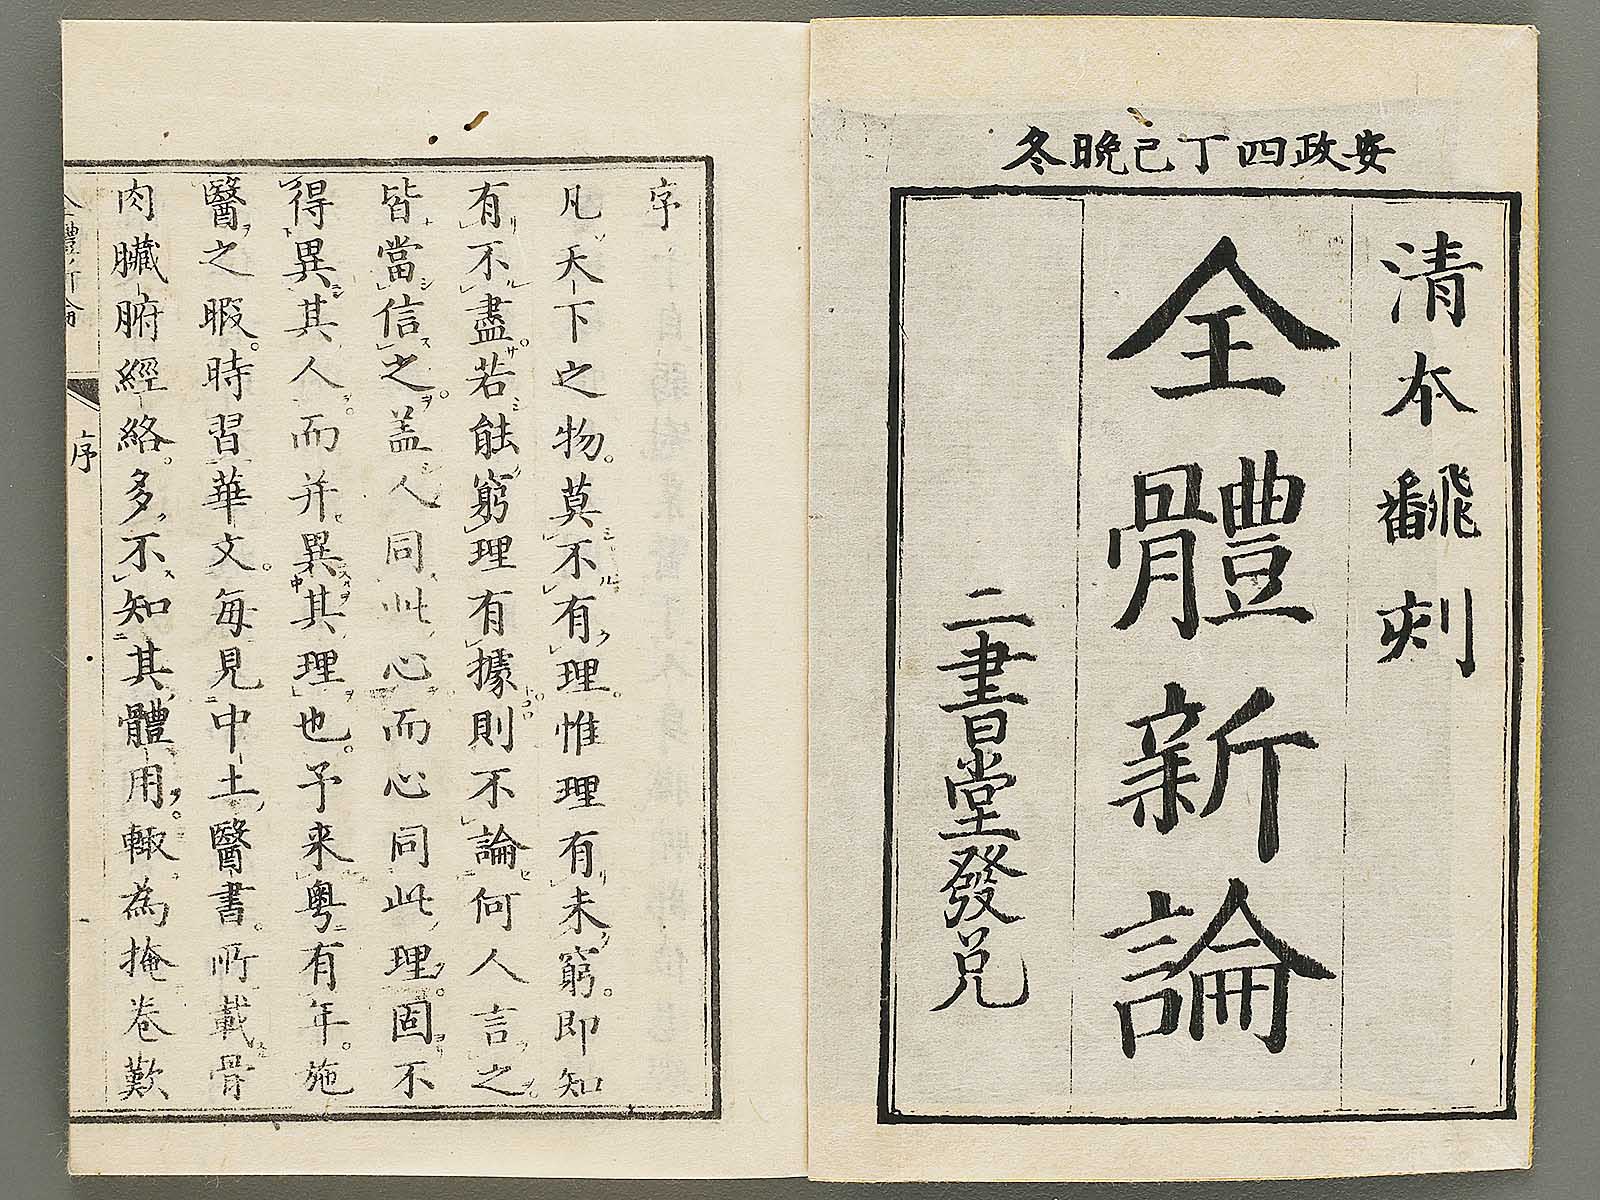 安政四丁巳晩冬
清本飜刻
全體新論
二書堂發兌
序
凡天下之物。莫不有理。惟理有未窮。即知
有不盡若能窮理有據則不論何人言之
皆當信之。盖人同此心而心同此理。固不
得異其人而并異其理也。予来粤有年。施
醫之暇。時習華文。毎見中土醫書。所載骨
肉臟腑經絡。多不知其體用。輙為掩卷歎
全體新論
序